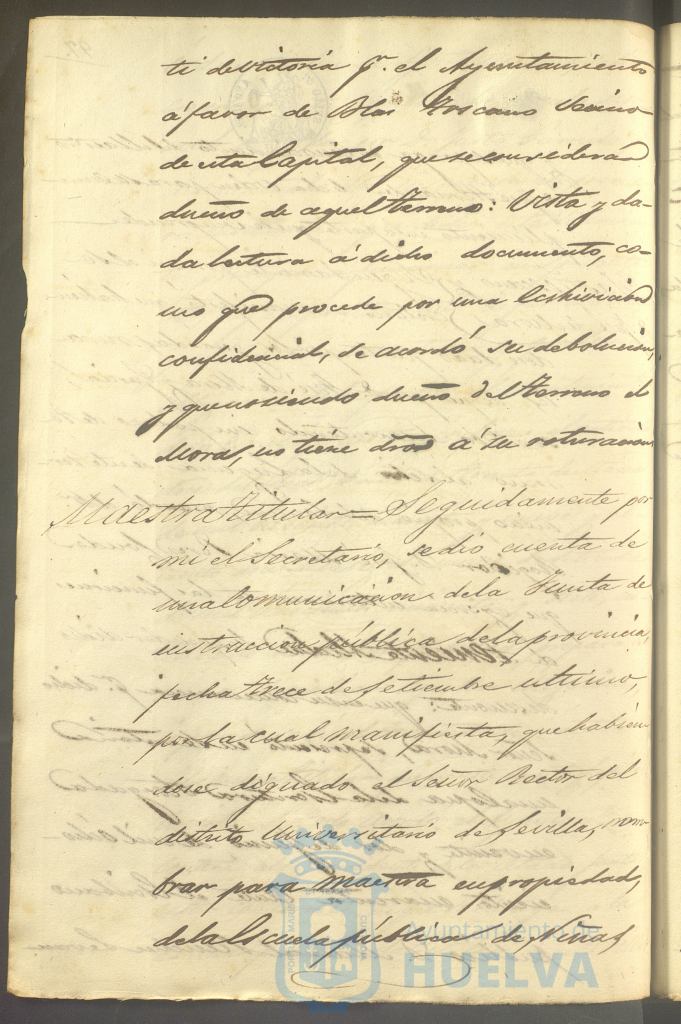 ti de victoria pr. el Ayuntamiento
á favor de Blas Toscano Vecino
de esta Capital, que se considerán
dueño de aquel terreno: Vista y da-
da lectura á dicho documento, co-
mo que procede por una
confidencial, se acordó su debolucion,
y que no siendo dueño del terreno el
Moral, no tiene dro á su roturacion
Maestra titular = Seguidamente por
mi el Secretario, se dió cuenta de
una Comunicacion de la Junta de
instruccion pública de la provincia,
fecha trece de Setiembre ultimo,
por la cual manifiesta, que habien-
dose dignado el Señor Rector del
distrito Universitario de Sevilla, nom-
brar para maestra en propiedad,
de la Escuela pública de Niñas
Ayuntamiento de
HUELVA